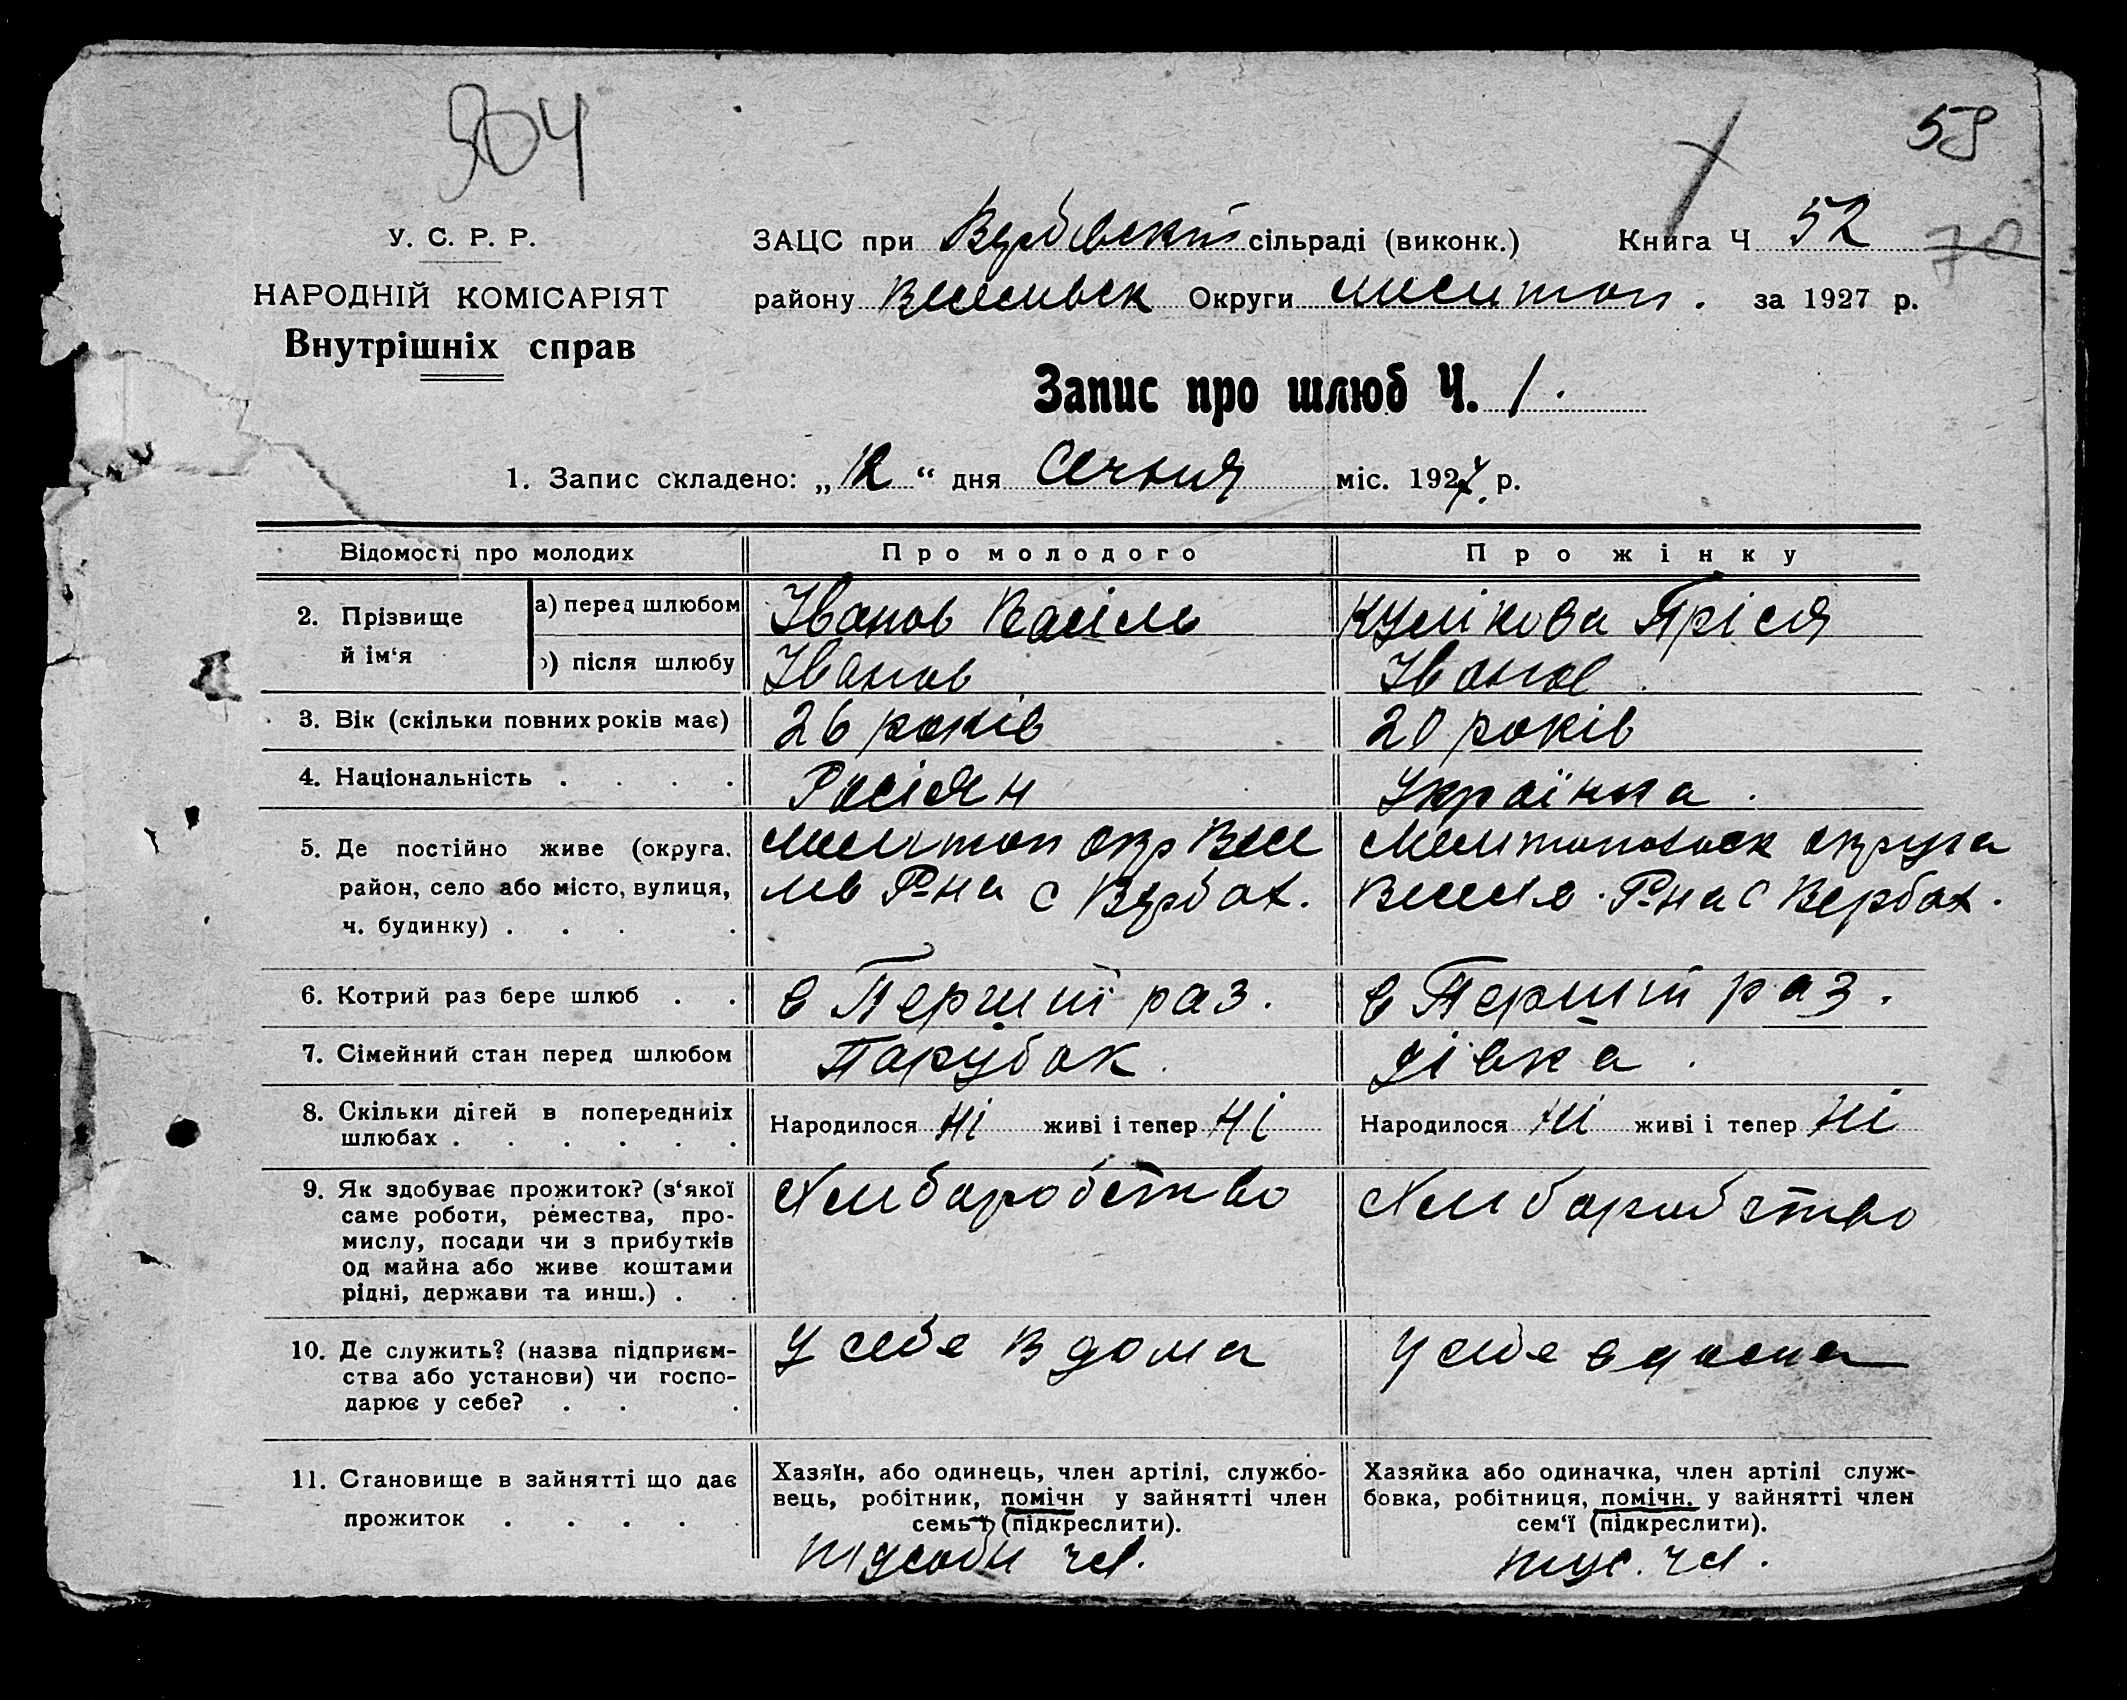 904
58
У. С. Р. Р.
НАРОДНІЙ КОМІСАРІЯТ
Внутрішніх справ
ЗАЦС при Вербовскій сільраді (виконк.) Книга Ч 52 70
району Весельск Округи мелитоп. за 1927 р.
Запис про шлюб Ч. 1.
1. Запис складено: „12“ дня Січня міс. 1927 р.
Відомості про молодих Про молодого Про жінку
2. Прізвище й ім‘я
а) перед шлюбом Іванов Василь Кулікова Пріся
б) після шлюбу Іванов Іванов
3. Вік (скільки повних років має) 26 років 20 років
4. Національність . . . . Росіян Українка.
5. Де постійно живе (округа, район, село або місто, вулиця, ч. будинку) . . . .
Мелитоп окр Весе
ль Р-на с Вербов.
Мелитопольск округа
Весел. Р-на с Вербов.
6. Котрий раз бере шлюб . . в Перший раз. в Перший раз.
7. Сімейний стан перед шлюбом Парубок. дівка.
8. Скільки дітей в попередниіх шлюбах . . . . . .
Народилося Ні живі і тепер Ні
Народилося Ні живі і тепер Ні
9. Як здобуває прожиток? (з‘якої
саме роботи, ремества, про-
мислу, посади чи з прибутків
од майна або живе коштами
рідні, держави та инш.) . .
Хлибаробство Хлибаробство
10. Де служить? (назва підприєм-
ства або установи) чи госпо-
дарює у себе? . . .
У себе в дома У себе в дома
11. Становище в зайнятті що дає
прожиток . . . . .
Хазяїн, або одинець, член артілі, службо-
вець, робітник, помічн у зайнятті член
семь‘ї (підкреслити).
Хазяйка або одиначка, член артілі служ-
бовка, робітниця, помічн. у зайнятті член
сем‘ї (підкреслити).